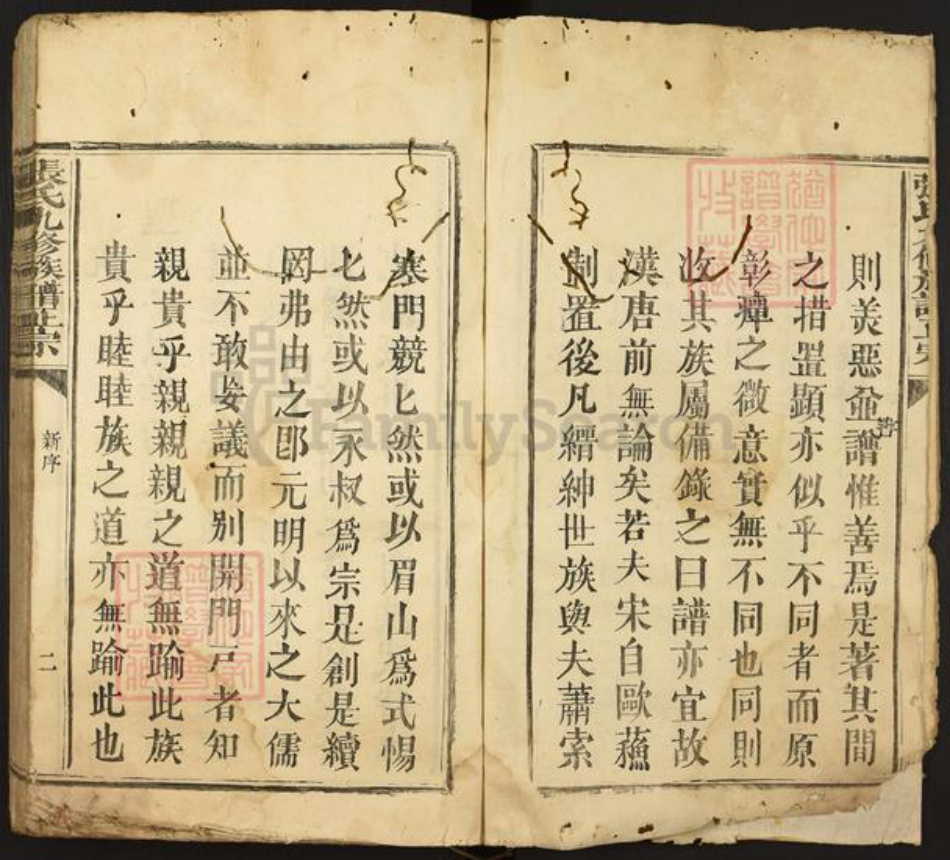 則美惡並譜惟善焉是著其間
之措置顯亦似乎不同者而原
彰癉之微意實無不同也同則
收其族屬備錄之曰譜亦宜故
漢唐前無論矣若夫宋自歐蘇
制置後凡縉紳世族與夫蕭索
寒門競匕然或以眉山爲式惕
匕然或以永叔爲宗是創是續
罔弗由之卽元明以來之大儒
並不敢妄議而别開門戸者知
親貴乎親親親之道無踰此族
貴乎睦睦族之道亦無踰此也
張氏九修族譜正宗
新序
二
FamilySearch